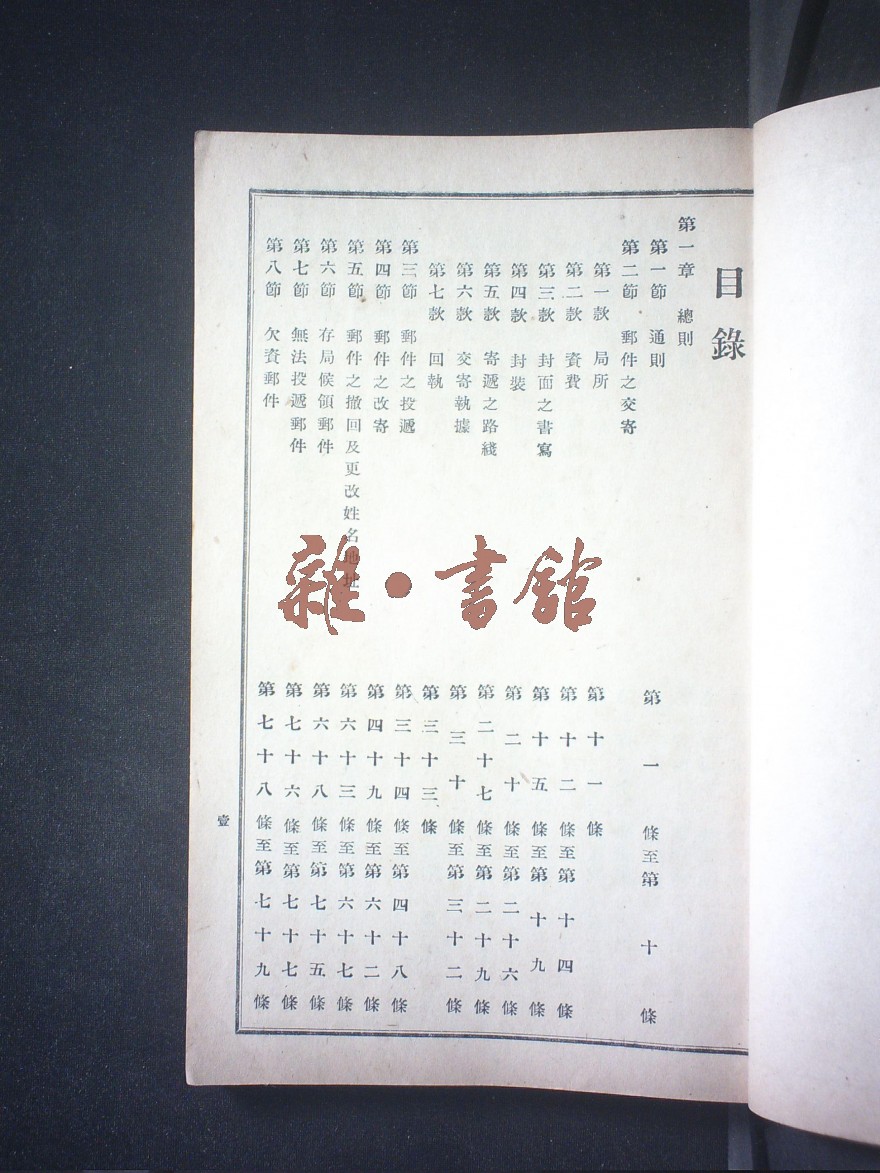 目錄
第一章 總則
第一節 通則 第一條至第十條
第二節 郵件之交寄
第一款 局所 第十一條
第二款 資費 第十二條至第十四條
第三款 封面之書寫 第十五條至第十九條
第四款 封裝 第二十條至第二十六條
第五款 寄遞之路綫 第二十七條至第二十九條
第六款 交寄執據 第三十條至第三十二條
第七款 回執 第三十三條
第三節 郵件之投遞 第三十四條至第四十八條
第四節 郵件之改寄 第四十九條至第六十二條
第五節 郵件之撤回及更改姓名地址 第六十三條至第六十七條
第六節 存局候領郵件 第六十八條至第七十五條
第七節 無法投遞郵件 第七十六條至第七十七條
第八節 欠資郵件 第七十八條至第七十九條
壹
雜·書館